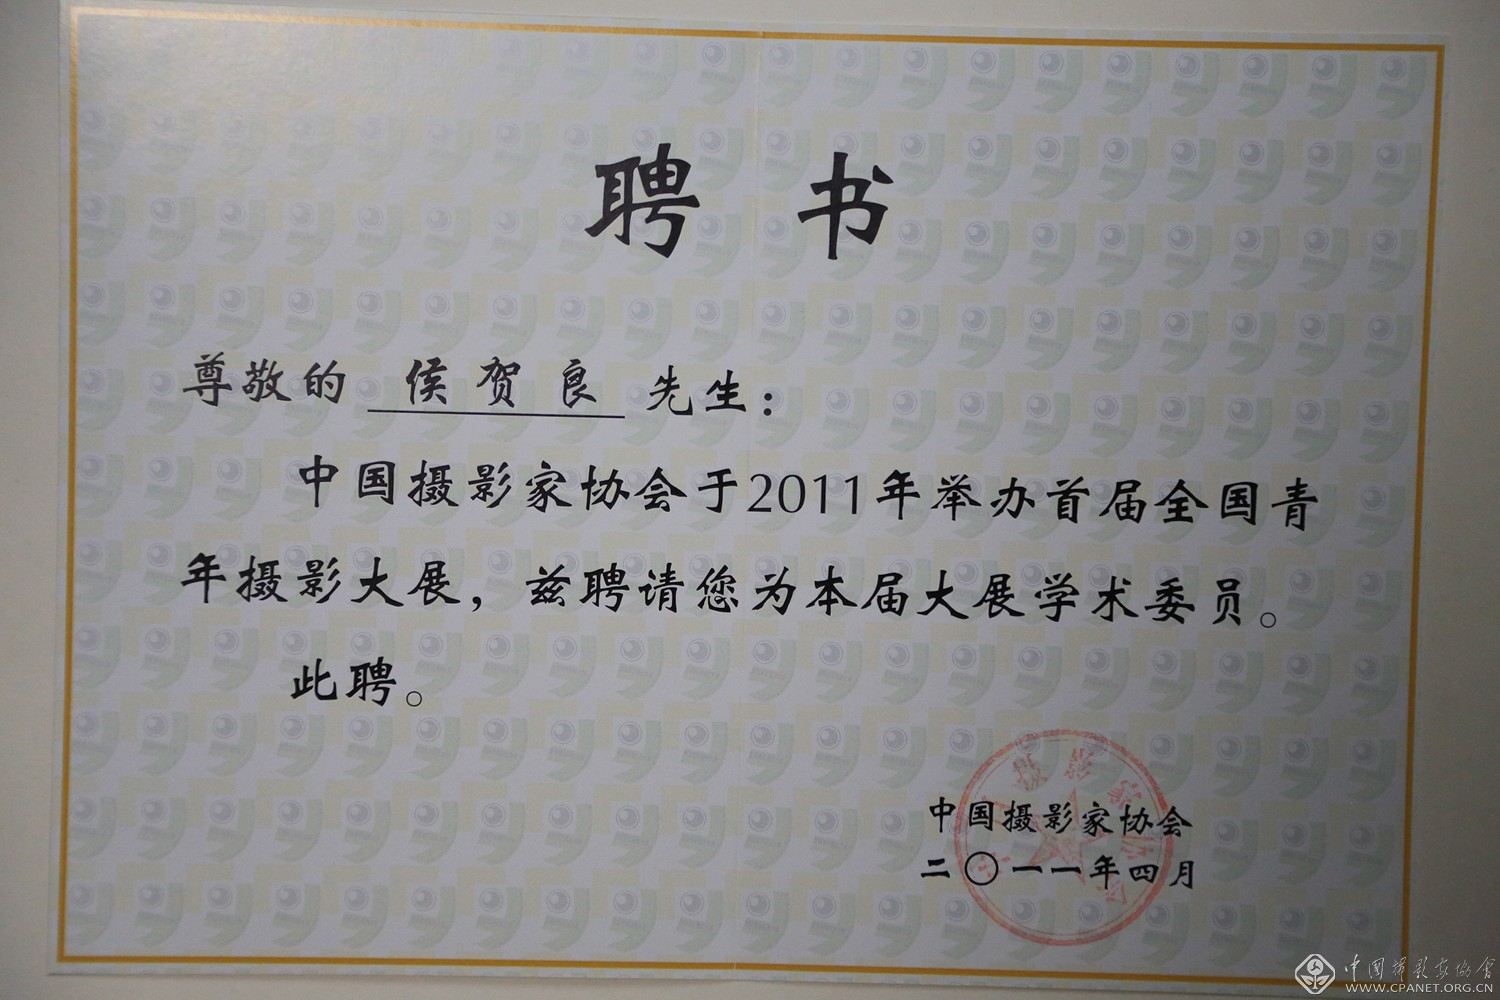 聘书
尊敬的 侯贺良 先生：
中国摄影家协会于2011年举办首届全国青
年摄影大展，兹聘请您为本届大展学术委员。
此聘。
中国摄影家协会
二〇一一年四月
中国摄影家協會
WWW.CPANET.ORG.CN